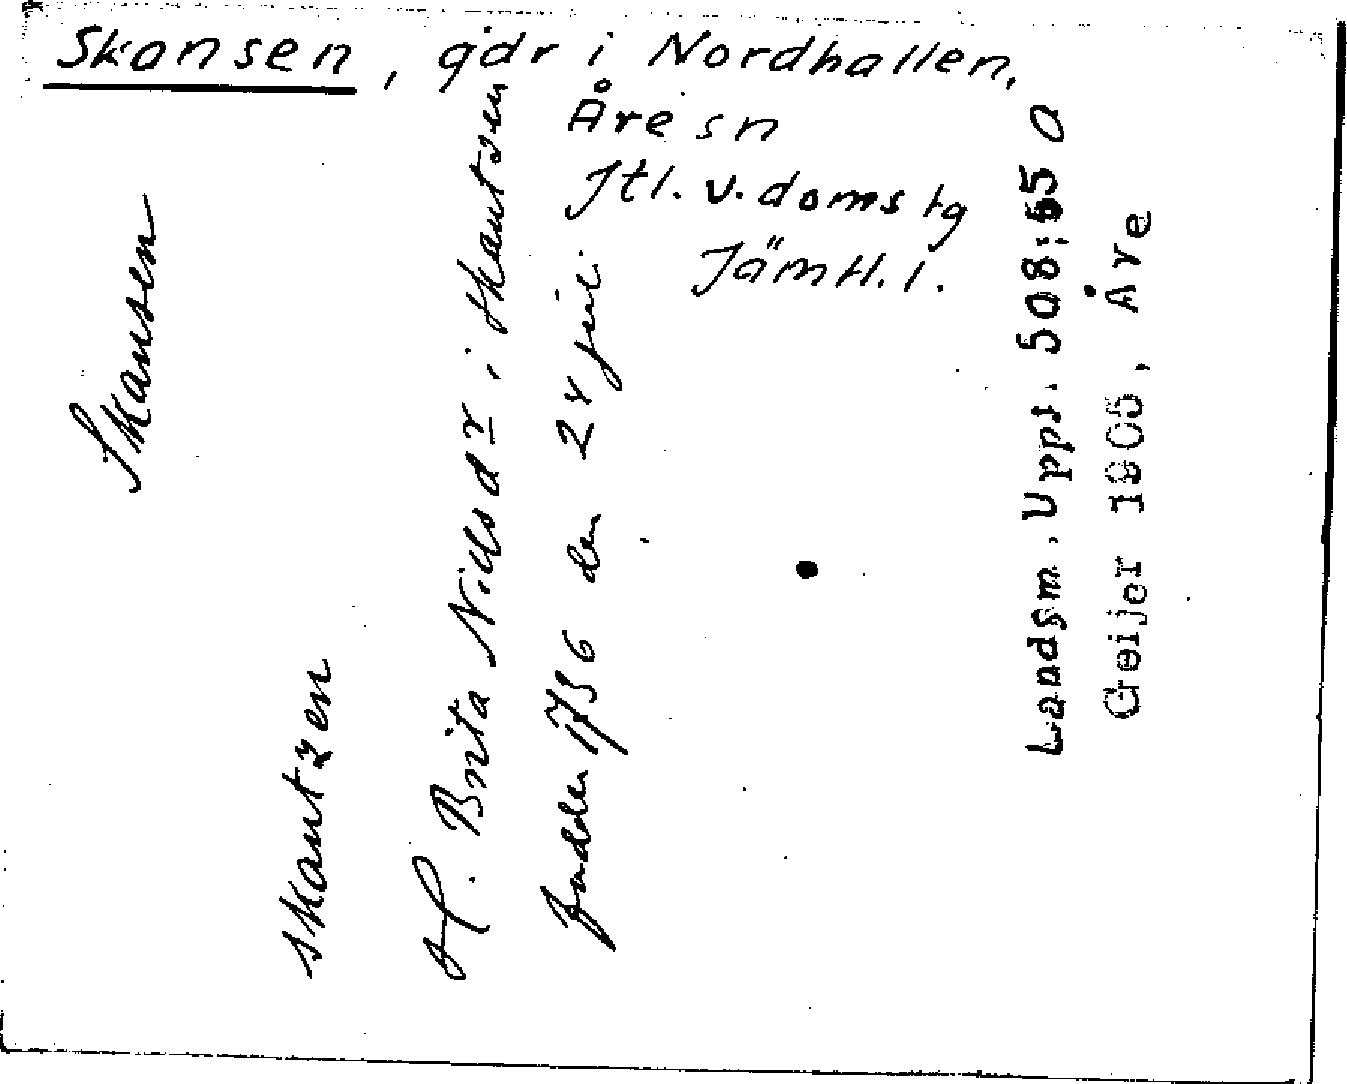 Skansen, gdr i Nordhallen,
Åre sn
Jtl. v. doms tg
Jämtl. l.
Skansen
skantzen
H. Brita Nillsdr i skantsen
fadder 1736 den 24 juli
Landsm. Upps. 508:55 a
Geijer 1905, Åre